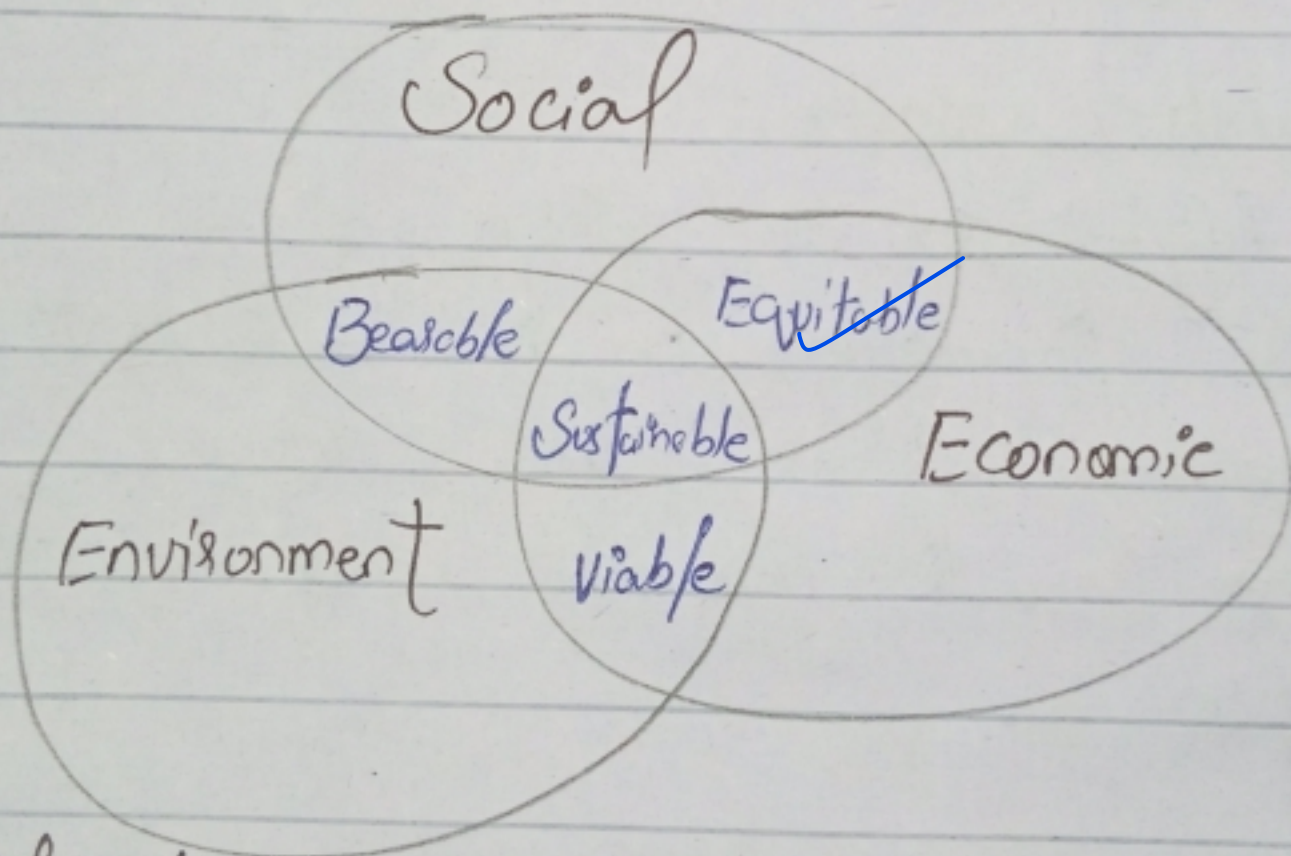 Social
Bearable
Equitable
Sustainable
Economic
Environment
Viable